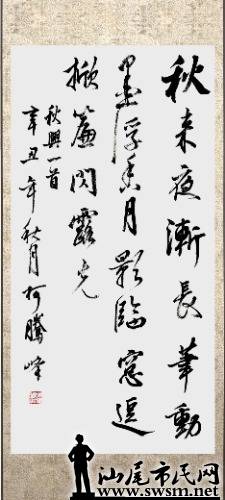 秋来夜漸長筆動
墨浮香月影臨窓逗
掀簾閃露光
秋興一首
辛丑年秋月柯騰峰
汕尾市民网
www.swsm.net